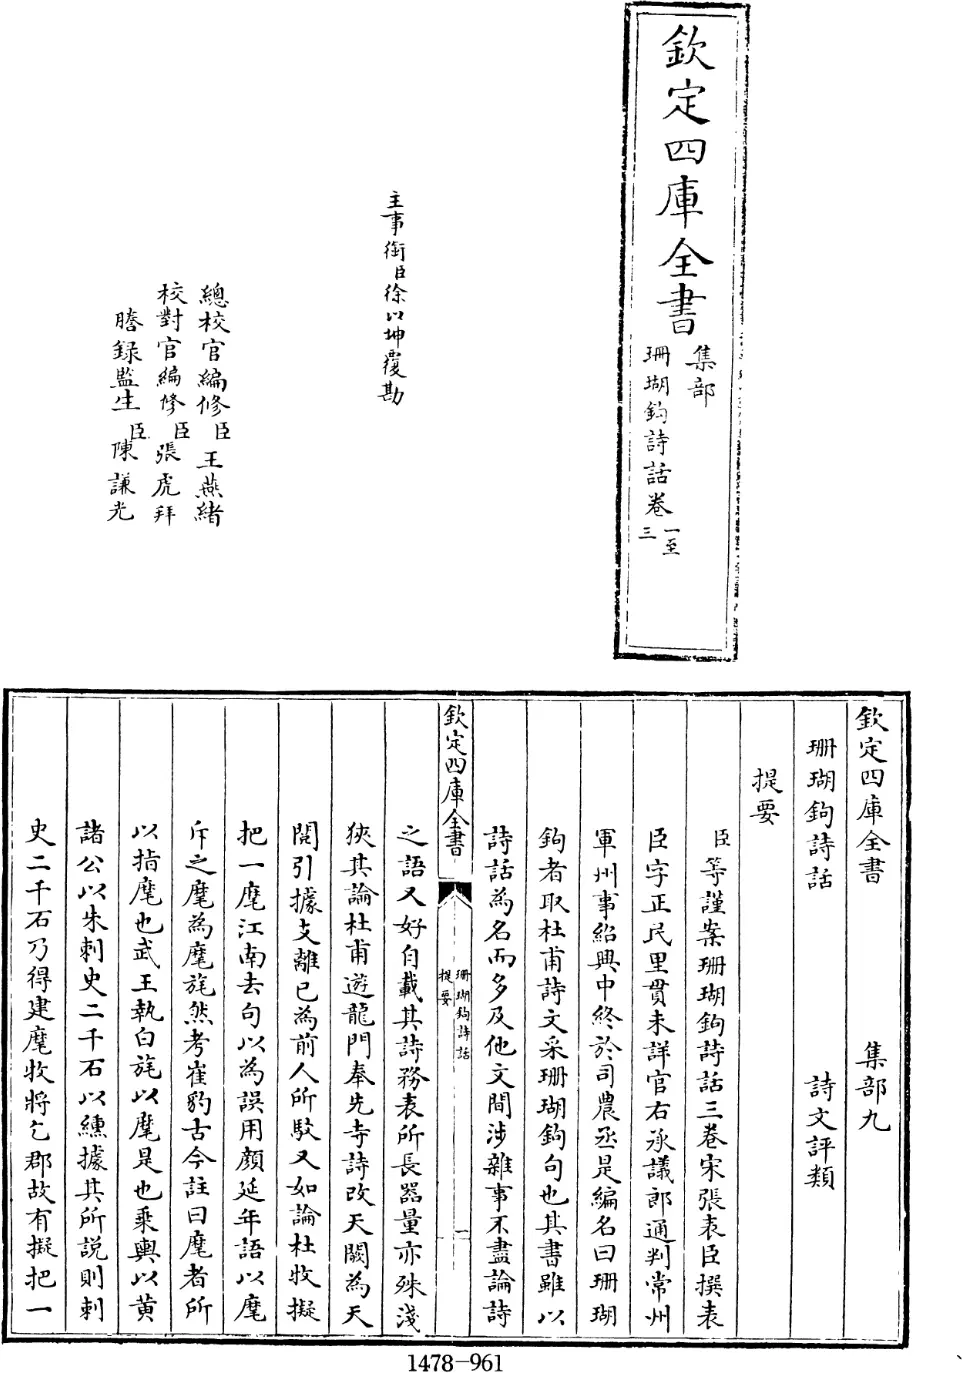 欽定四庫全書
集部
珊瑚鉤詩話卷一至三
主事銜臣徐以坤覆勘
總校官編修臣王燕緒
校對官編修臣張虎拜
謄錄監生臣陳謙光
欽定四庫全書　集部九
珊瑚鉤詩話　詩文評類
提要
臣等謹案珊瑚鉤詩話三卷宋張表臣撰表
臣字正民里貫未詳官右承議郎通判常州
軍州事紹興中終於司農丞是編名曰珊瑚
鉤者取杜甫詩文采珊瑚鉤句也其書雖以
詩話為名而多及他文間涉雜事不盡論詩
欽定四庫全書
珊瑚鉤詩話
提要
一
之語又好自載其詩務表所長器量亦殊淺
狹其論杜甫遊龍門奉先寺詩改天闕為天
閱引據支離已為前人所駁又如論杜牧擬
把一麾江南去句以為誤用顏延年語以麾
斥之麾為麾旄然考崔豹古今註曰麾者所
以指麾也武王執白旄以麾是也乘輿以黃
諸公以朱刺史二千石以纁據其所說則刺
史二千石乃得建麾牧將乞郡故有擬把一
1478-961